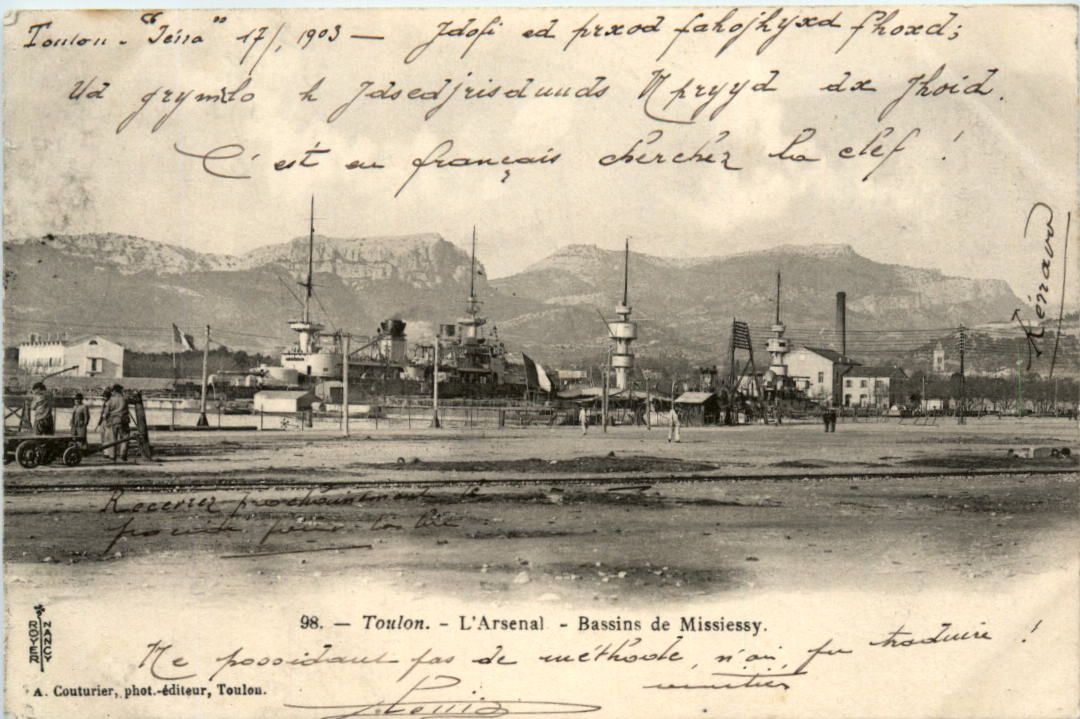 Toulon - "Iéna" 17/, 1903 — Jdofi ed prxod fahojhyxd fhoxd;
Ud grymelo h Jdsedjrisdunds Mpryyd dx Jhoid.
C'est en français cherchez la clef !
Recevrez prochainement le
pour la
98. — Toulon. - L'Arsenal - Bassins de Missiessy.
ROYER
NANCY
Ne possédant pas de méthode, n'ai pu traduire !
A. Couturier, phot.-éditeur, Toulon.